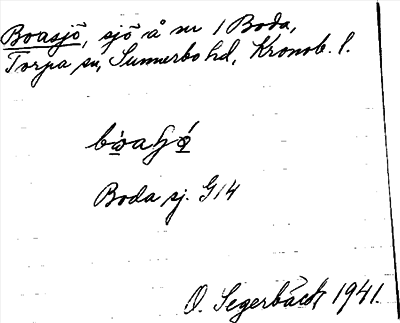 Boasjö, sjö å nr 1 Boda,
Torpa sn, Sunnerbo hd, Kronob. l.
Boda sj. G14
O. Segerbäck 1941.